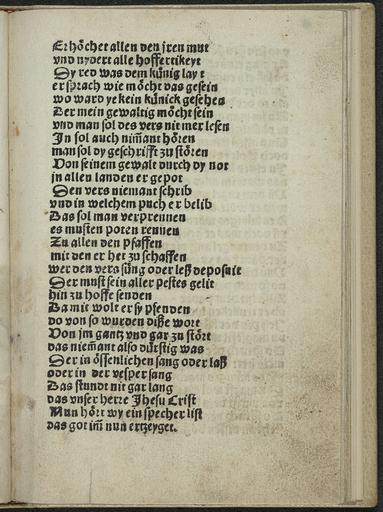 Erhöchet allen den jren mut
vnd nydert alle hoffertikeyt
Dy red was dem künig layt
er sprach wie möcht das gesein
wo ward ye kein künick gesehen
Der mein gewaltig möcht sein
vnd man sol des vers nit mer lesen
In sol auch nim̄ant hören
man sol dy geschrifft zu stören
Von seinem gewalt durch dy not
jn allen landen er gepot
Den vers niemant schrib
vnd in welchem puch er belib
Das sol man verprennen
es musten poten rennen
Zu allen den pfaffen
mit den er het zu schaffen
wer den vers süng oder leß deposuit
Der must sein aller pestes gelit
hin zu hoffe senden
Damit wolt er sy pfenden
do von so wurden diße wort
Von jm gantz vnd gar zu stört
das niem̄ant also dürstig was
Der in öffenlichen sang oder laß
oder in der vesper sang
Das stundt nit gar lang
das vnser herre Jhesu Crist
Nun hört wy ein specher list
das got im̄ nun ertzeyget.